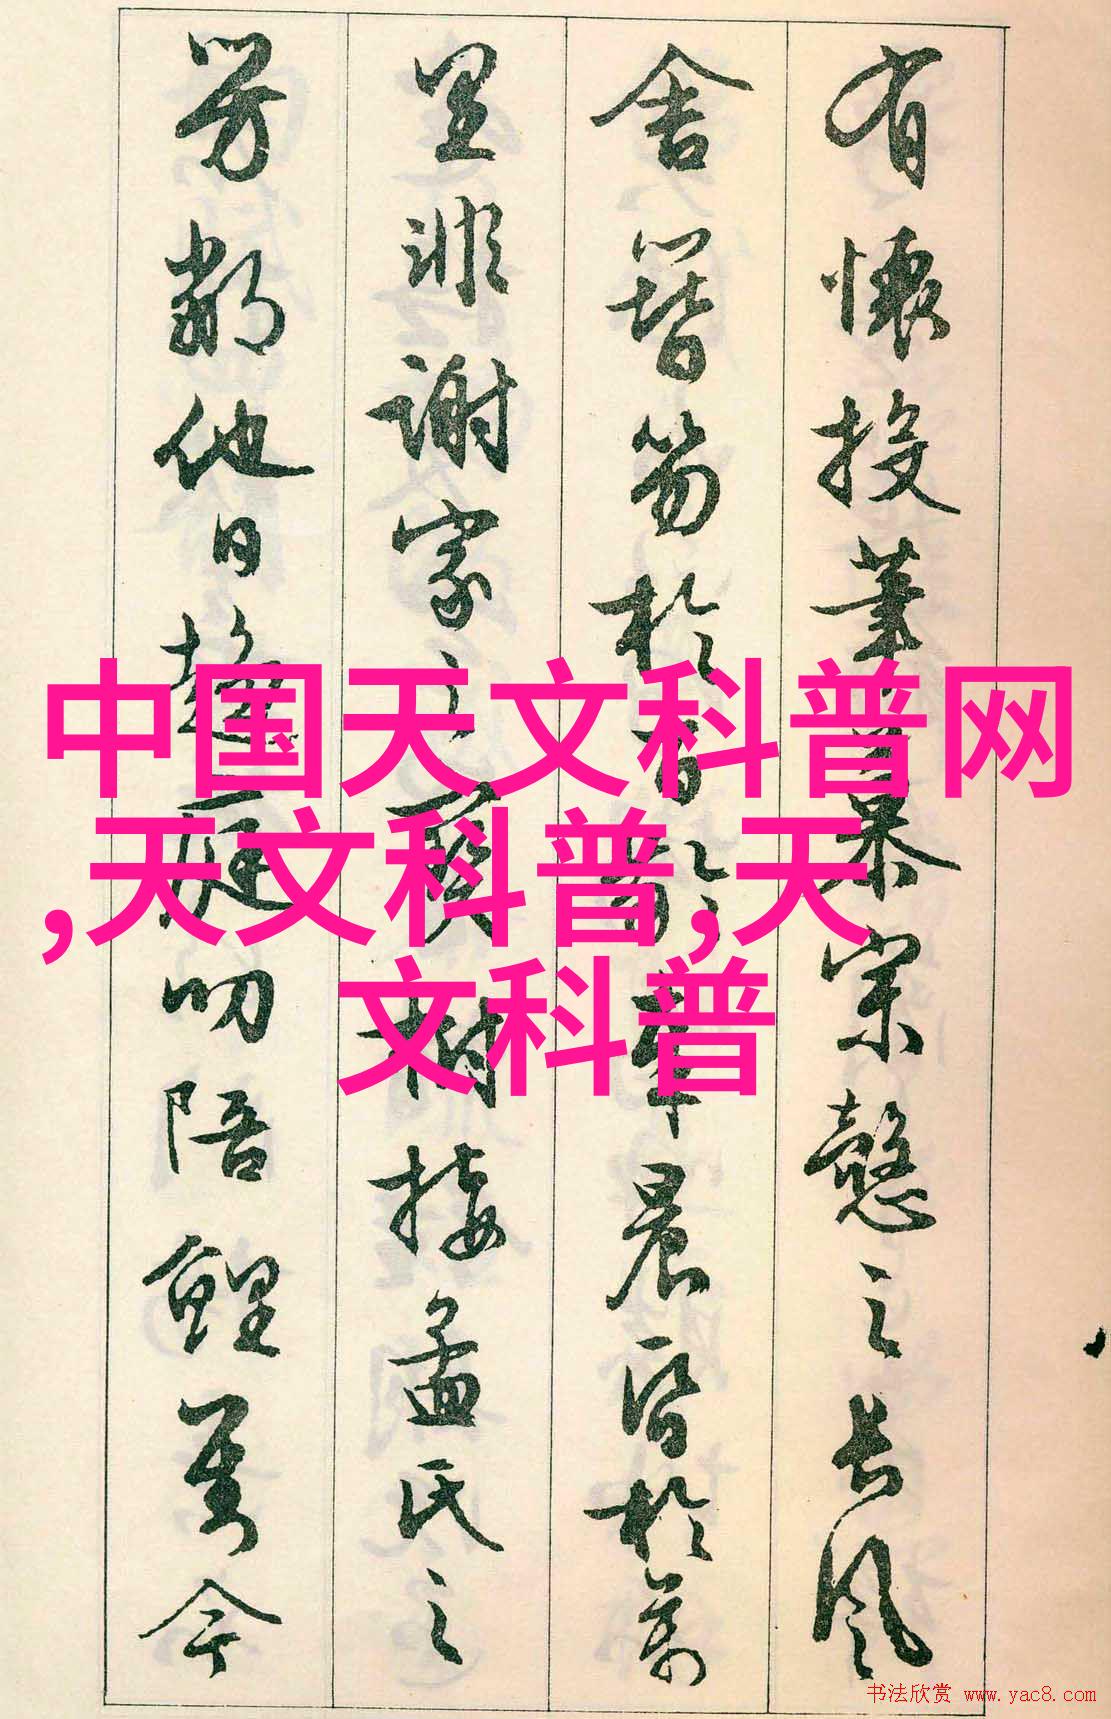 有懷投筆慕宗愨之長風
舍簪笏於百齡奉晨昏於萬
里非謝家之寶樹接孟氏之
芳鄰他日趨庭叨陪鯉對今
中国天文科普网
,天文科普,天
文科普
书法欣赏 www.yac8.com